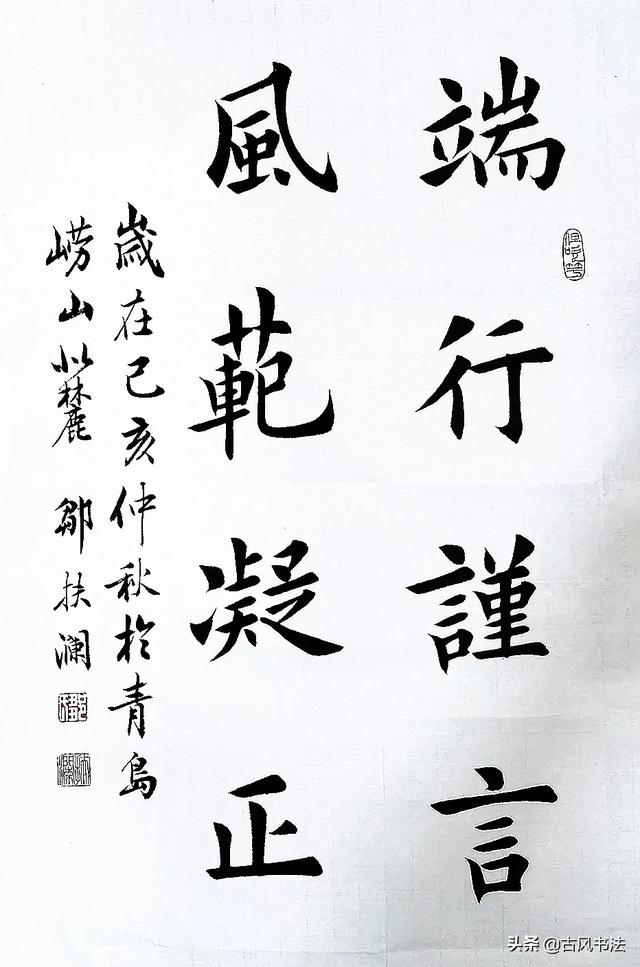 端行謹言
風範凝正
歲在己亥仲秋於青島
嶗山北麓 鄒扶瀾
头条 @古风书法